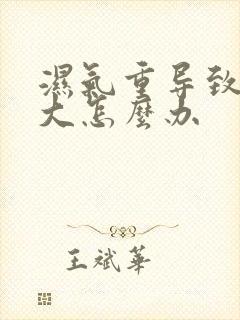 濕氣重导致
大怎麼办
王斌華